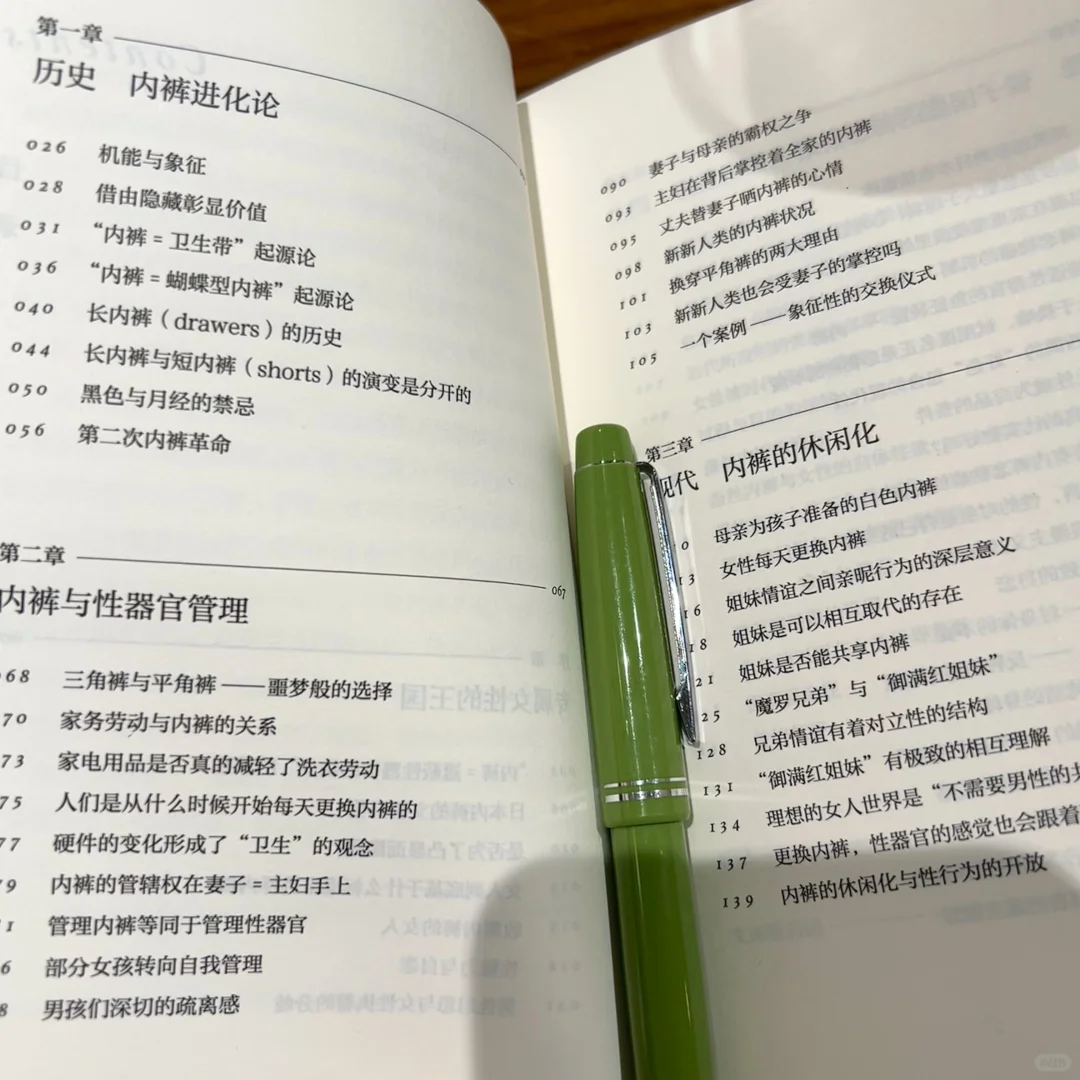 第一章
历史 内裤进化论
026 机能与象征
028 借由隐藏彰显价值
031 “内裤=卫生带”起源论
036 “内裤=蝴蝶型内裤”起源论
040 长内裤（drawers）的历史
044 长内裤与短内裤（shorts）的演变是分开的
050 黑色与月经的禁忌
056 第二次内裤革命
第二章 067
内裤与性器官管理
68 三角裤与平角裤——噩梦般的选择
70 家务劳动与内裤的关系
73 家电用品是否真的减轻了洗衣劳动
75 人们是从什么时候开始每天更换内裤的
77 硬件的变化形成了“卫生”的观念
79 内裤的管辖权在妻子=主妇手上
1 管理内裤等同于管理性器官
6 部分女孩转向自我管理
8 男孩们深切的疏离感
090 妻子与母亲的霸权之争
093 主妇在背后掌控着全家的内裤
095 丈夫替妻子晒内裤的心情
098 新新人类的内裤状况
101 换穿平角裤的两大理由
103 新新人类也会受妻子的掌控吗
105 一个案例——象征性的交换仪式
第三章
现代 内裤的休闲化
0 母亲为孩子准备的白色内裤
13 女性每天更换内裤
16 姐妹情谊之间亲昵行为的深层意义
18 姐妹是可以相互取代的存在
21 姐妹是否能共享内裤
25 “魔罗兄弟”与“御满红姐妹”
128 兄弟情谊有着对立性的结构
131 “御满红姐妹”有极致的相互理解
134 理想的女人世界是“不需要男性的
137 更换内裤，性器官的感觉也会跟着
139 内裤的休闲化与性行为的开放